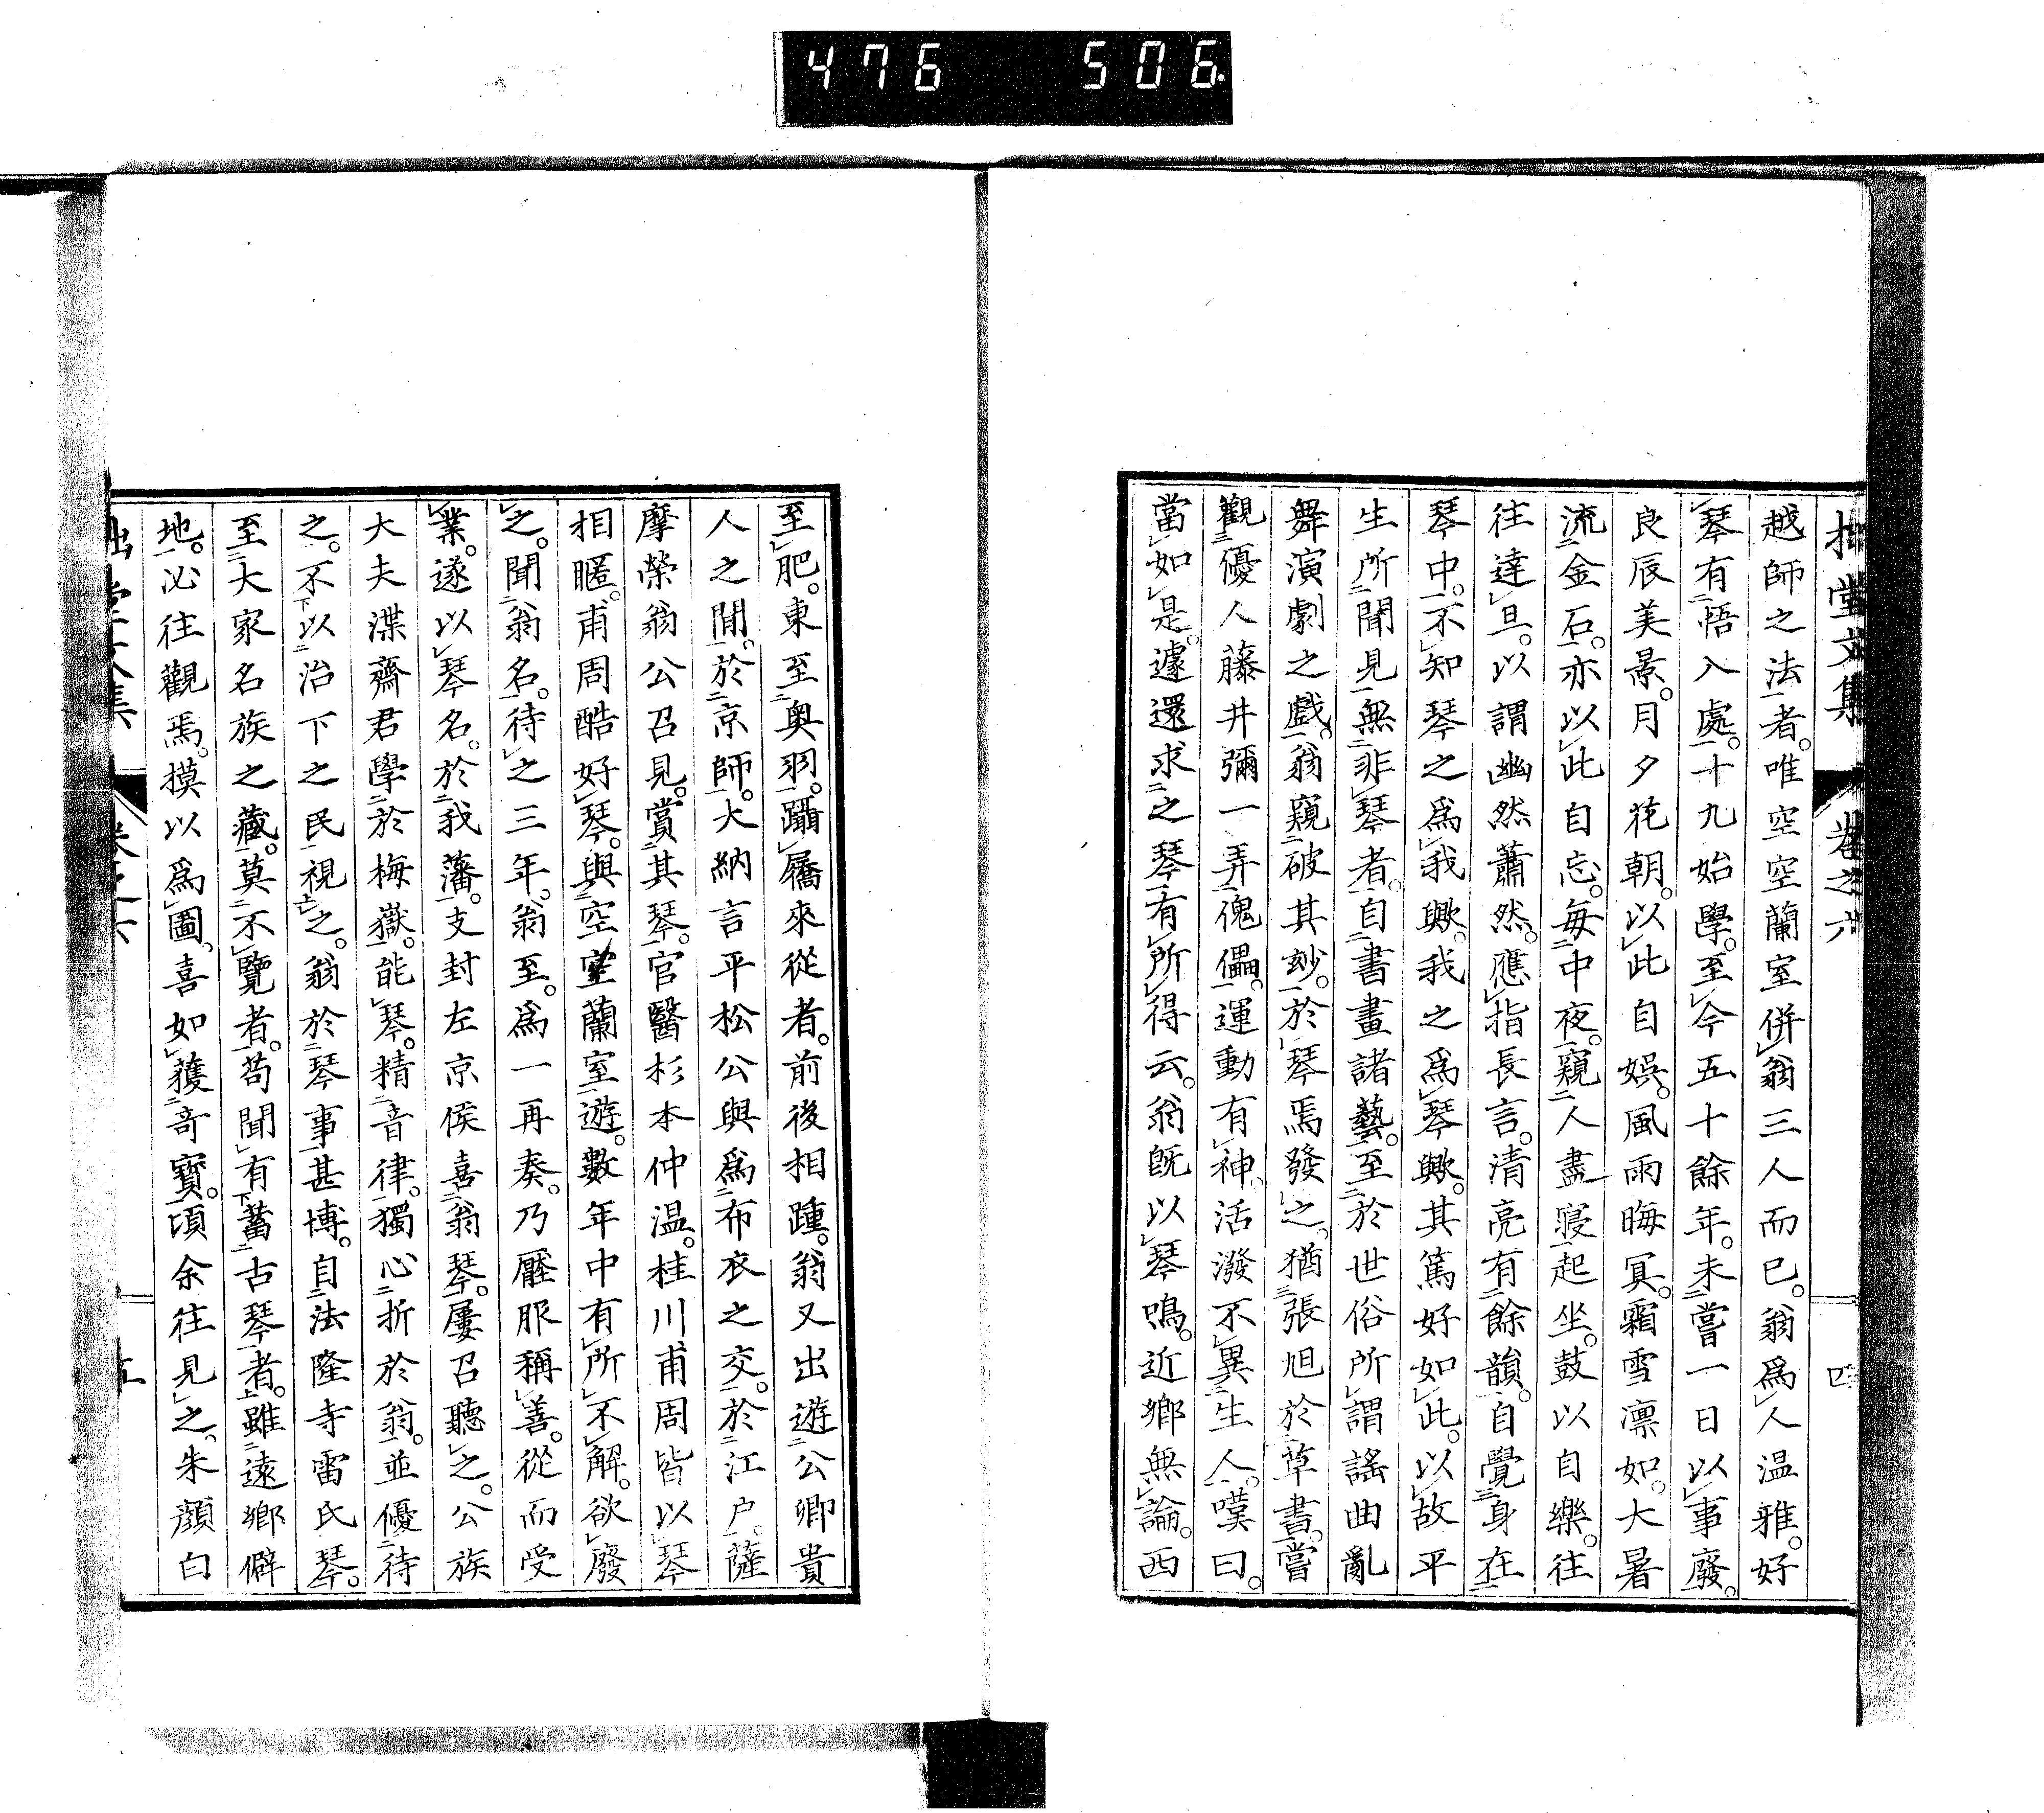 476 506.
拙堂文集 卷之六 四
越師之法者。唯空空蘭室併翁三人而已。翁爲人温雅。好
琴有悟入處。十九始學。至今五十餘年。未嘗一日以事廢。
良辰美景。月夕花朝。以此自娯。風雨晦冥。霜雪凛如。大暑
流金石。亦以此自忘。毎中夜。窺人盡寢。起坐。鼓以自樂。往
往達旦。以謂幽然蕭然。應指長言。清亮有餘韻。自覺身在
琴中。不知琴之爲我歟。我之爲琴歟。其篤好如此。以故平
生所聞見無非琴者。自書畫諸藝。至於世俗所謂謠曲亂
舞演劇之戲。翁窺破其玅。於琴焉發之。猶張旭於草書。嘗
觀優人藤井彌一弄傀儡。運動有神。活潑不異生人。嘆曰。
當如是。遽還求之琴有所得云。翁既以琴鳴。近鄉無論。西
至肥。東至奧羽。躡屩來從者。前後相踵。翁又出遊公卿貴
人之間。於京師。大納言平松公與爲布衣之交。於江戸。薩
摩榮翁公召見。賞其琴。官醫杉本仲温。桂川甫周皆以琴
相暱。甫周酷好琴。與空空蘭室遊。數年中有所不解。欲廢
之。聞翁名。待之三年。翁至。爲一再奏。乃壓服稱善。從而受
業。遂以琴名。於我藩。支封左京侯喜翁琴。屢召聽之。公族
大夫渫齋君學於梅嶽。能琴。精音律。獨心折於翁。並優待
之。不以治下之民視之。翁於琴事甚博。自法隆寺雷氏琴。
至大家名族之藏。莫不覽者。苟聞有蓄古琴者。雖遠鄉僻
地。必往觀焉。摸以爲圖。喜如獲奇寶。頃余往見之。朱顏白